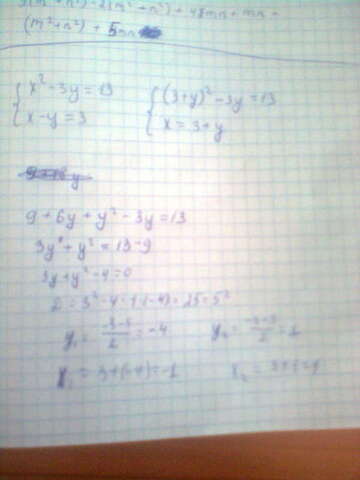 (m²+n²) + 5mn
{ x² - 3y = 13
{ x - y = 3
{ (3+y)² - 3y = 13
{ x = 3 + y
9 + 6y + y² - 3y = 13
3y + y² = 13 - 9
3y + y² - 4 = 0
D = 3² - 4 · 1 · (-4) = 25 = 5²
y₁ = (-3-5)/2 = -4
x₁ = 3 + (-4) = -1